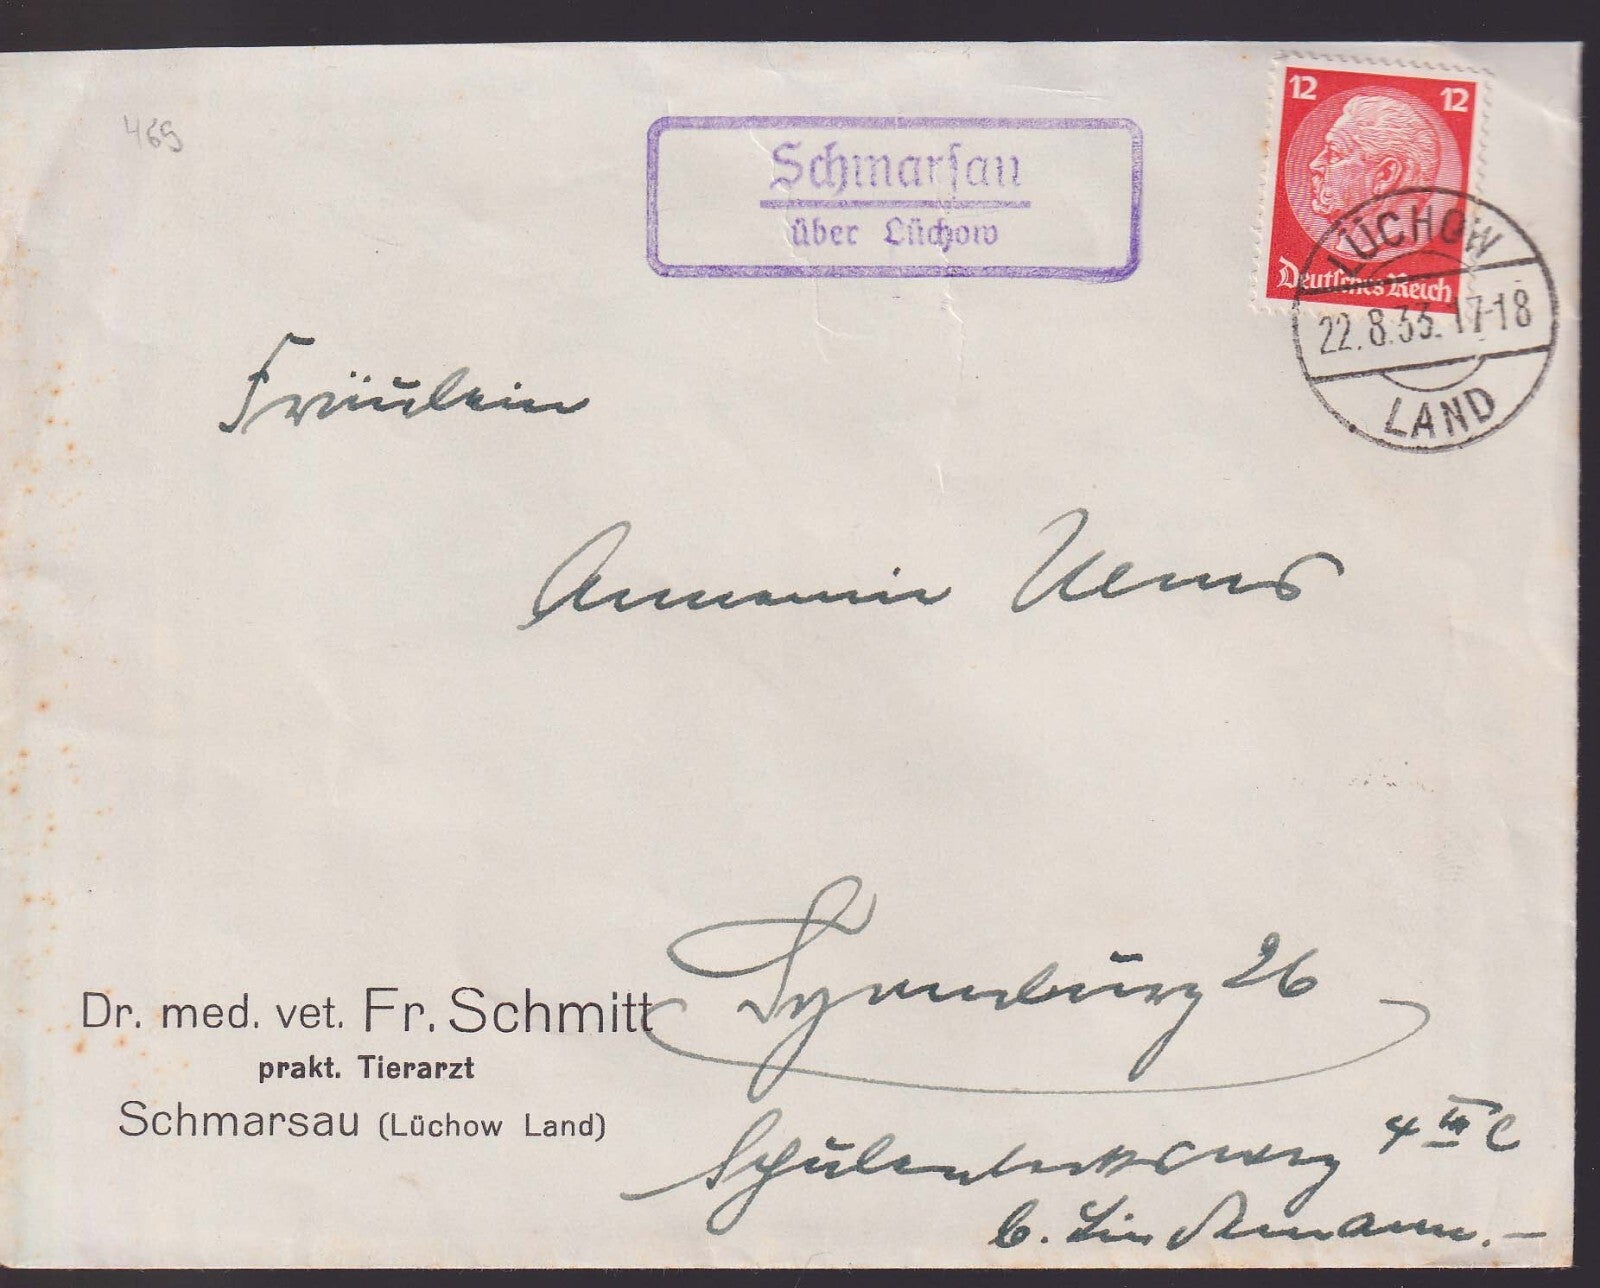 469
Schmarsau
über Lüchow
12 12
Deutsches Reich
LÜCHOW
22.8.33. 17-18
LAND
Fräulein
Annemarie
Hamburg 26
4 III C
b. Lindemann.-
Dr. med. vet. Fr. Schmitt
prakt. Tierarzt
Schmarsau (Lüchow Land)